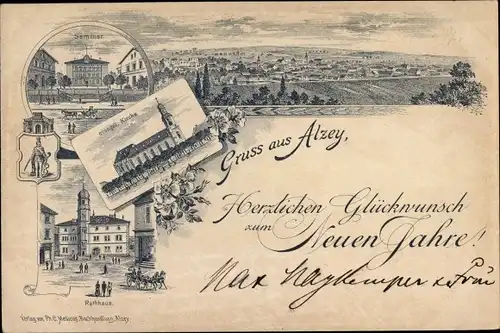 Seminar.
evangel. Kirche
Gruss aus Alzey,
Herzlichen Glückwunsch
zum
Neuen Jahre!
Max u Frau
Rathhaus.
Verlag von Ph. C. Buchhandlung, Alzey.